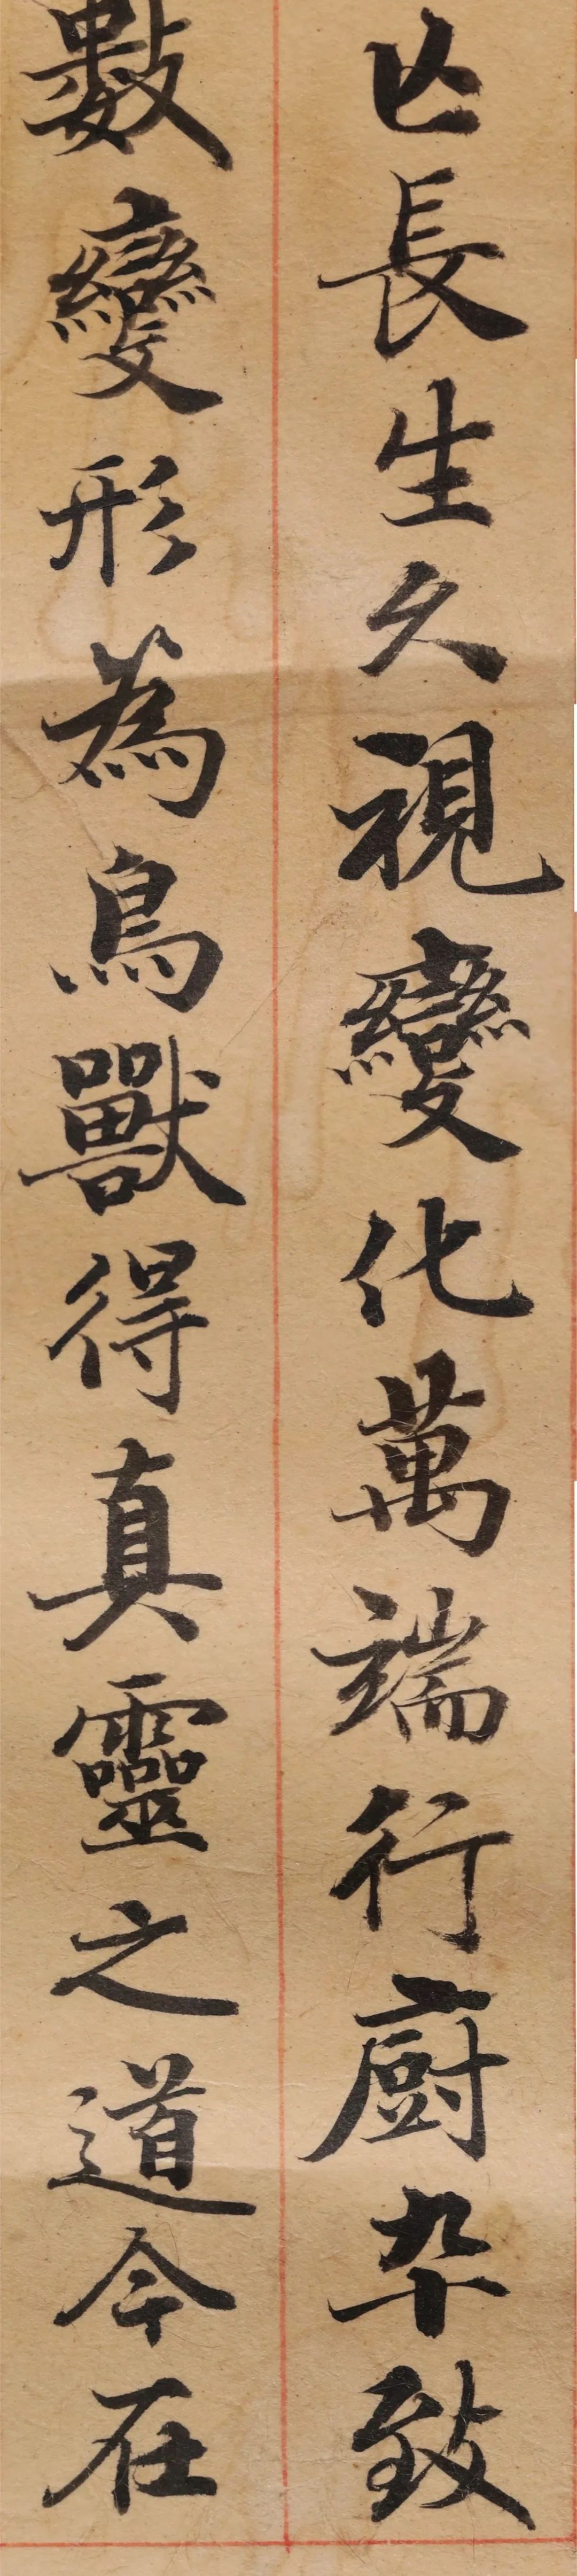 亾長生久視變化萬端行廚卆致
數變形為鳥獸得真靈之道今在